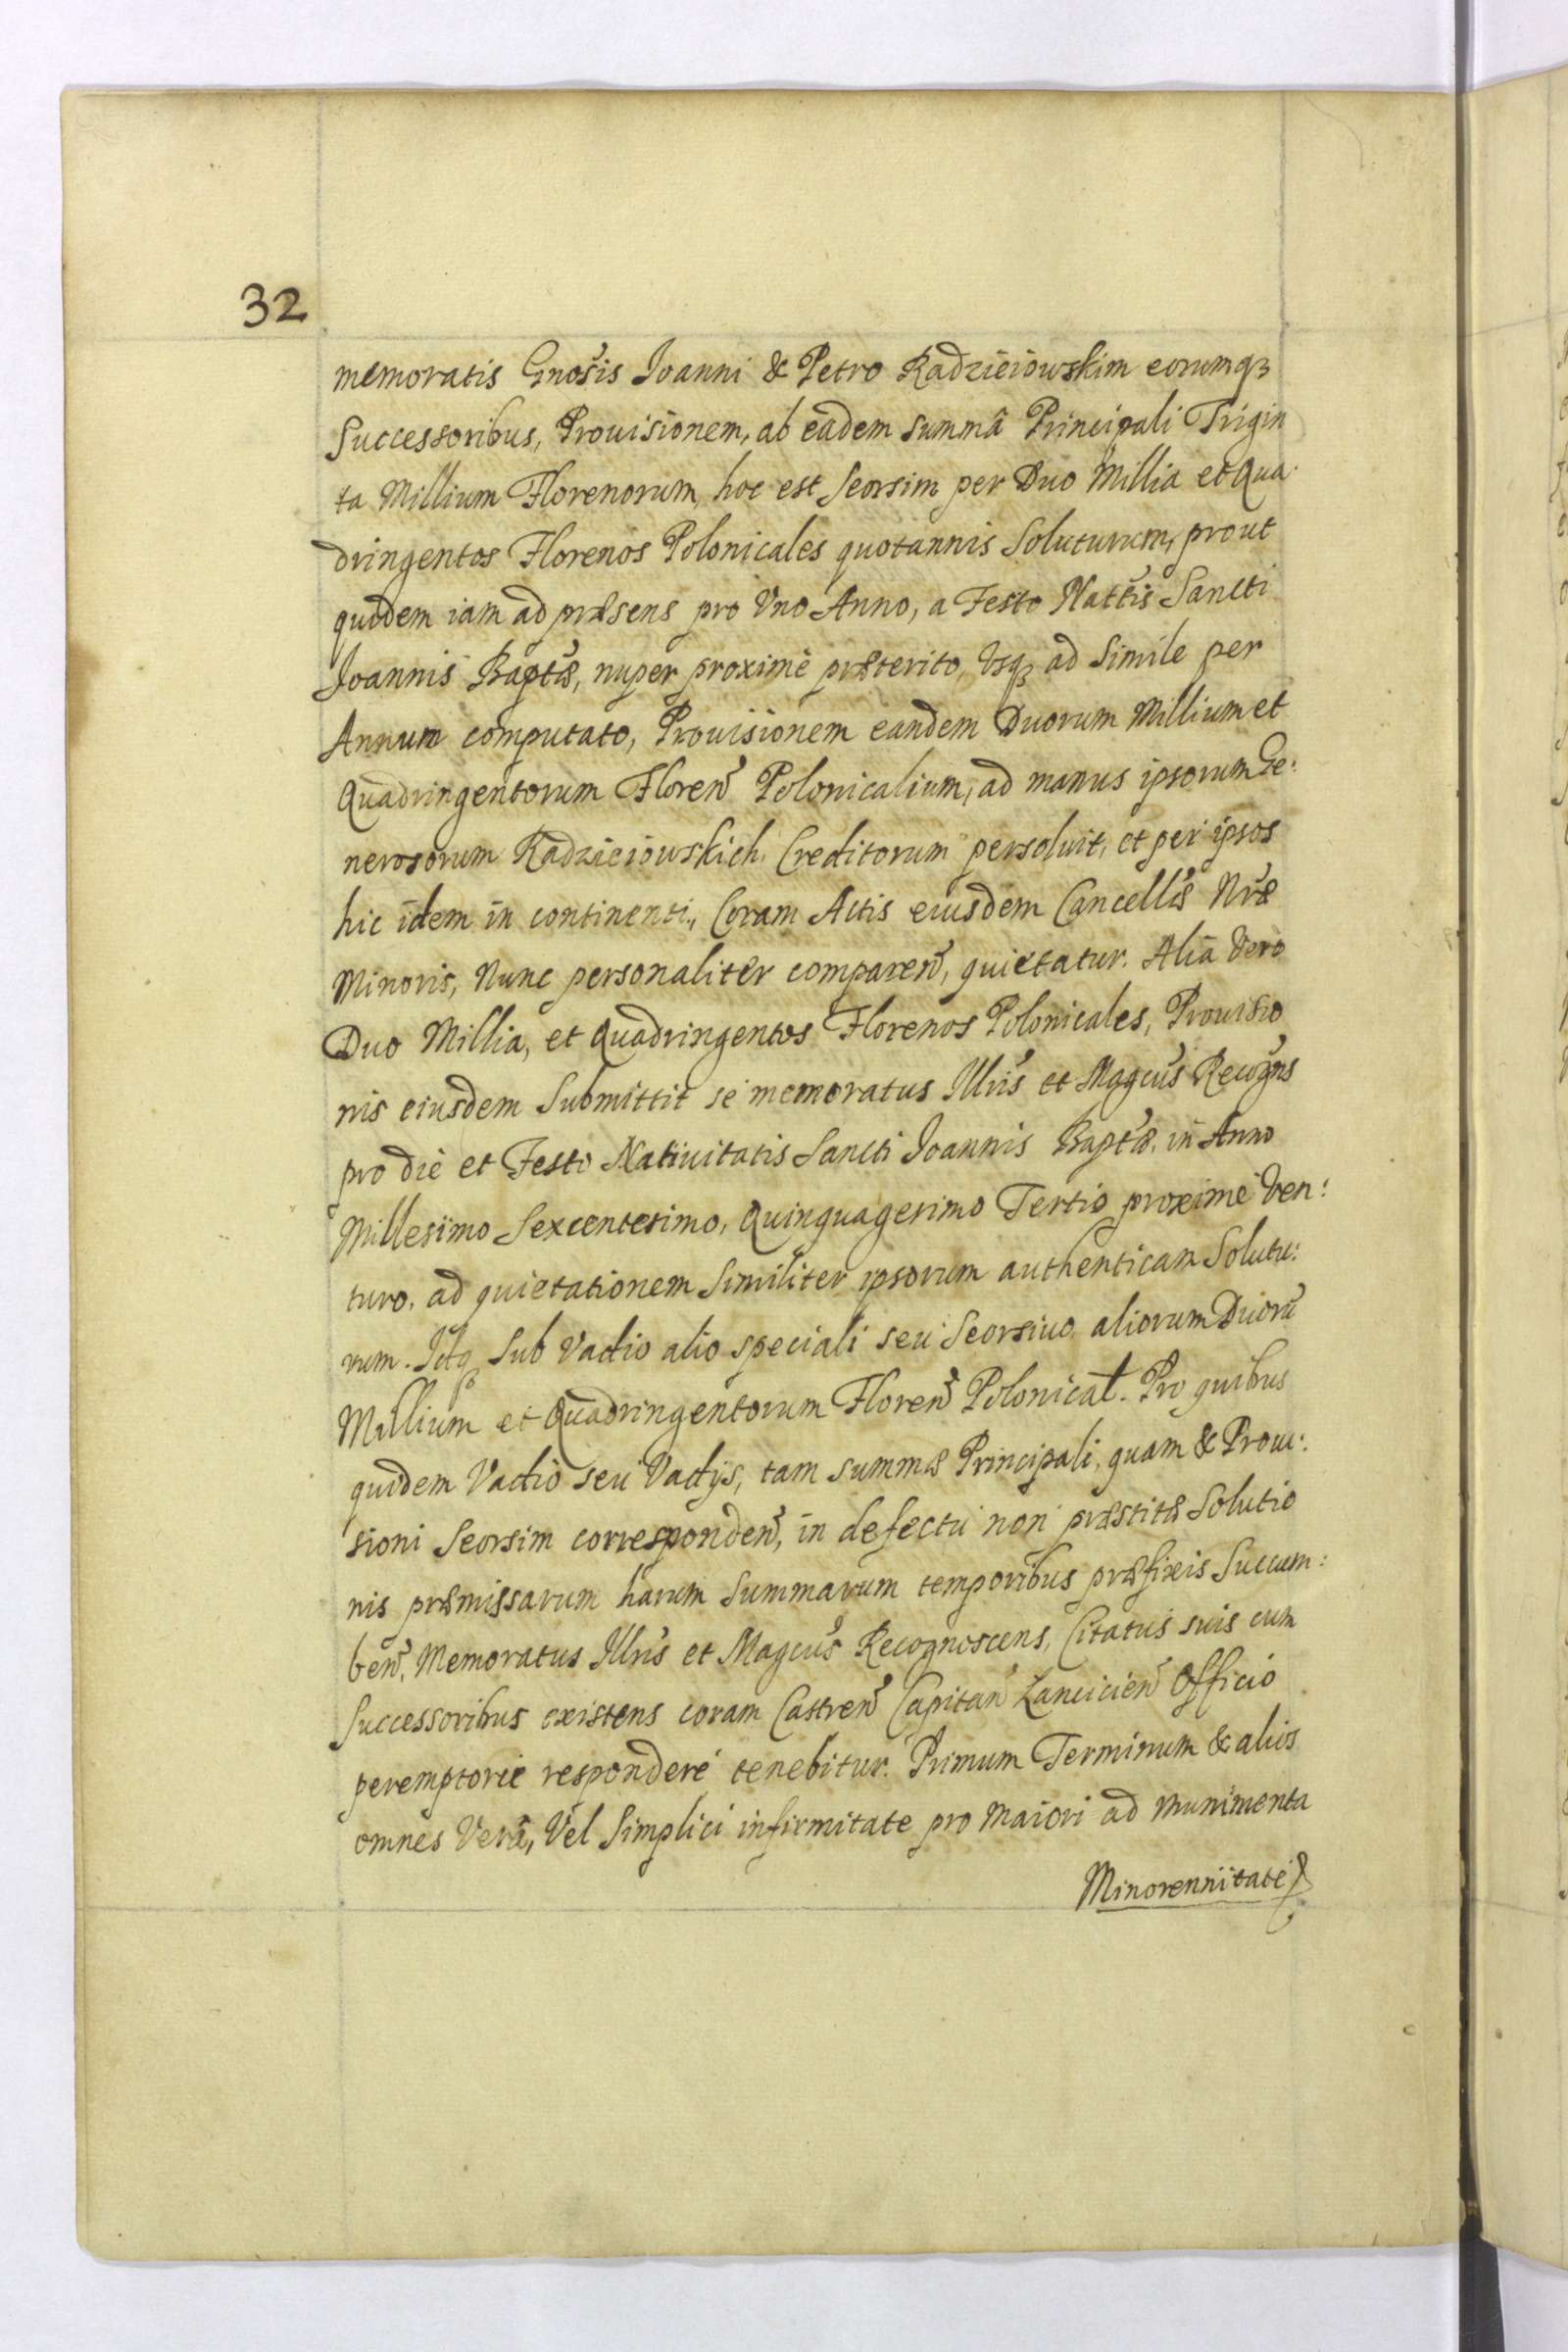 32
memoratis Gnosis Joanni & Petro Radzieiowskim eorumqꝫ
Successoribus, Prouisionem, ab eâdem summâ Principali Trigin
ta Millium Florenorum, hoc est Seorsim per Duo Millia et Qua:
dringentos Florenos Polonicales quotannis Soluturum, prout
quidem iam ad præsens pro Vno Anno, a Festo Nattis Sancti
Joannis Baptæ, nuper proximè præterito, Vsqꝫ ad Simile per
Annum computato, Prouisionem eandem Duorum Millium et
Quadringentorum Floren Polonicalium, ad manus ipsorum Ge:
nerosorum Radzieiowskich Creditorum persoluit, et per ipsos
hic idem in continenti, Coram Actis eiusdem Cancellis Nræ
Minoris, Nunc personaliter comparen, quietatur. Alia Vero
Duo Millia, et Quadringentos Florenos Polonicales, Prouisio
nis eiusdem Submittit se memoratus Illris et Magcus Recogns
pro die et Festo Natiuitatis Sancti Joannis Baptæ, in Anno
Millesimo Sexcentesimo, Quinquagesimo Tertio proximè Ven:
turo, ad quietationem Similiter ipsorum authenticam Solutu:
rum. Idqꝫ Sub Vadio alio speciali seu Seorsiuo aliorum Duorũ
Millium et Quadringentorum Floren Polonicał. Pro quibus
quidem Vadio seu Vadijs, tam summæ Principali, quam & Proui:
sioni Seorsim corresponden, in defectu non præstitæ Solutio
nis præmissarum harum Summarum temporibus præfixis Succum:
ben, Memoratus Illris et Magcus Recognoscens, Citatus suis cum
Successoribus existens coram Castren Capitan Lancicien Officio
peremptorie respondere tenebitur. Primum Terminum & alios
omnes Verâ, Vel Simplici infirmitate pro Maiori ad Munimenta
Minorennitate